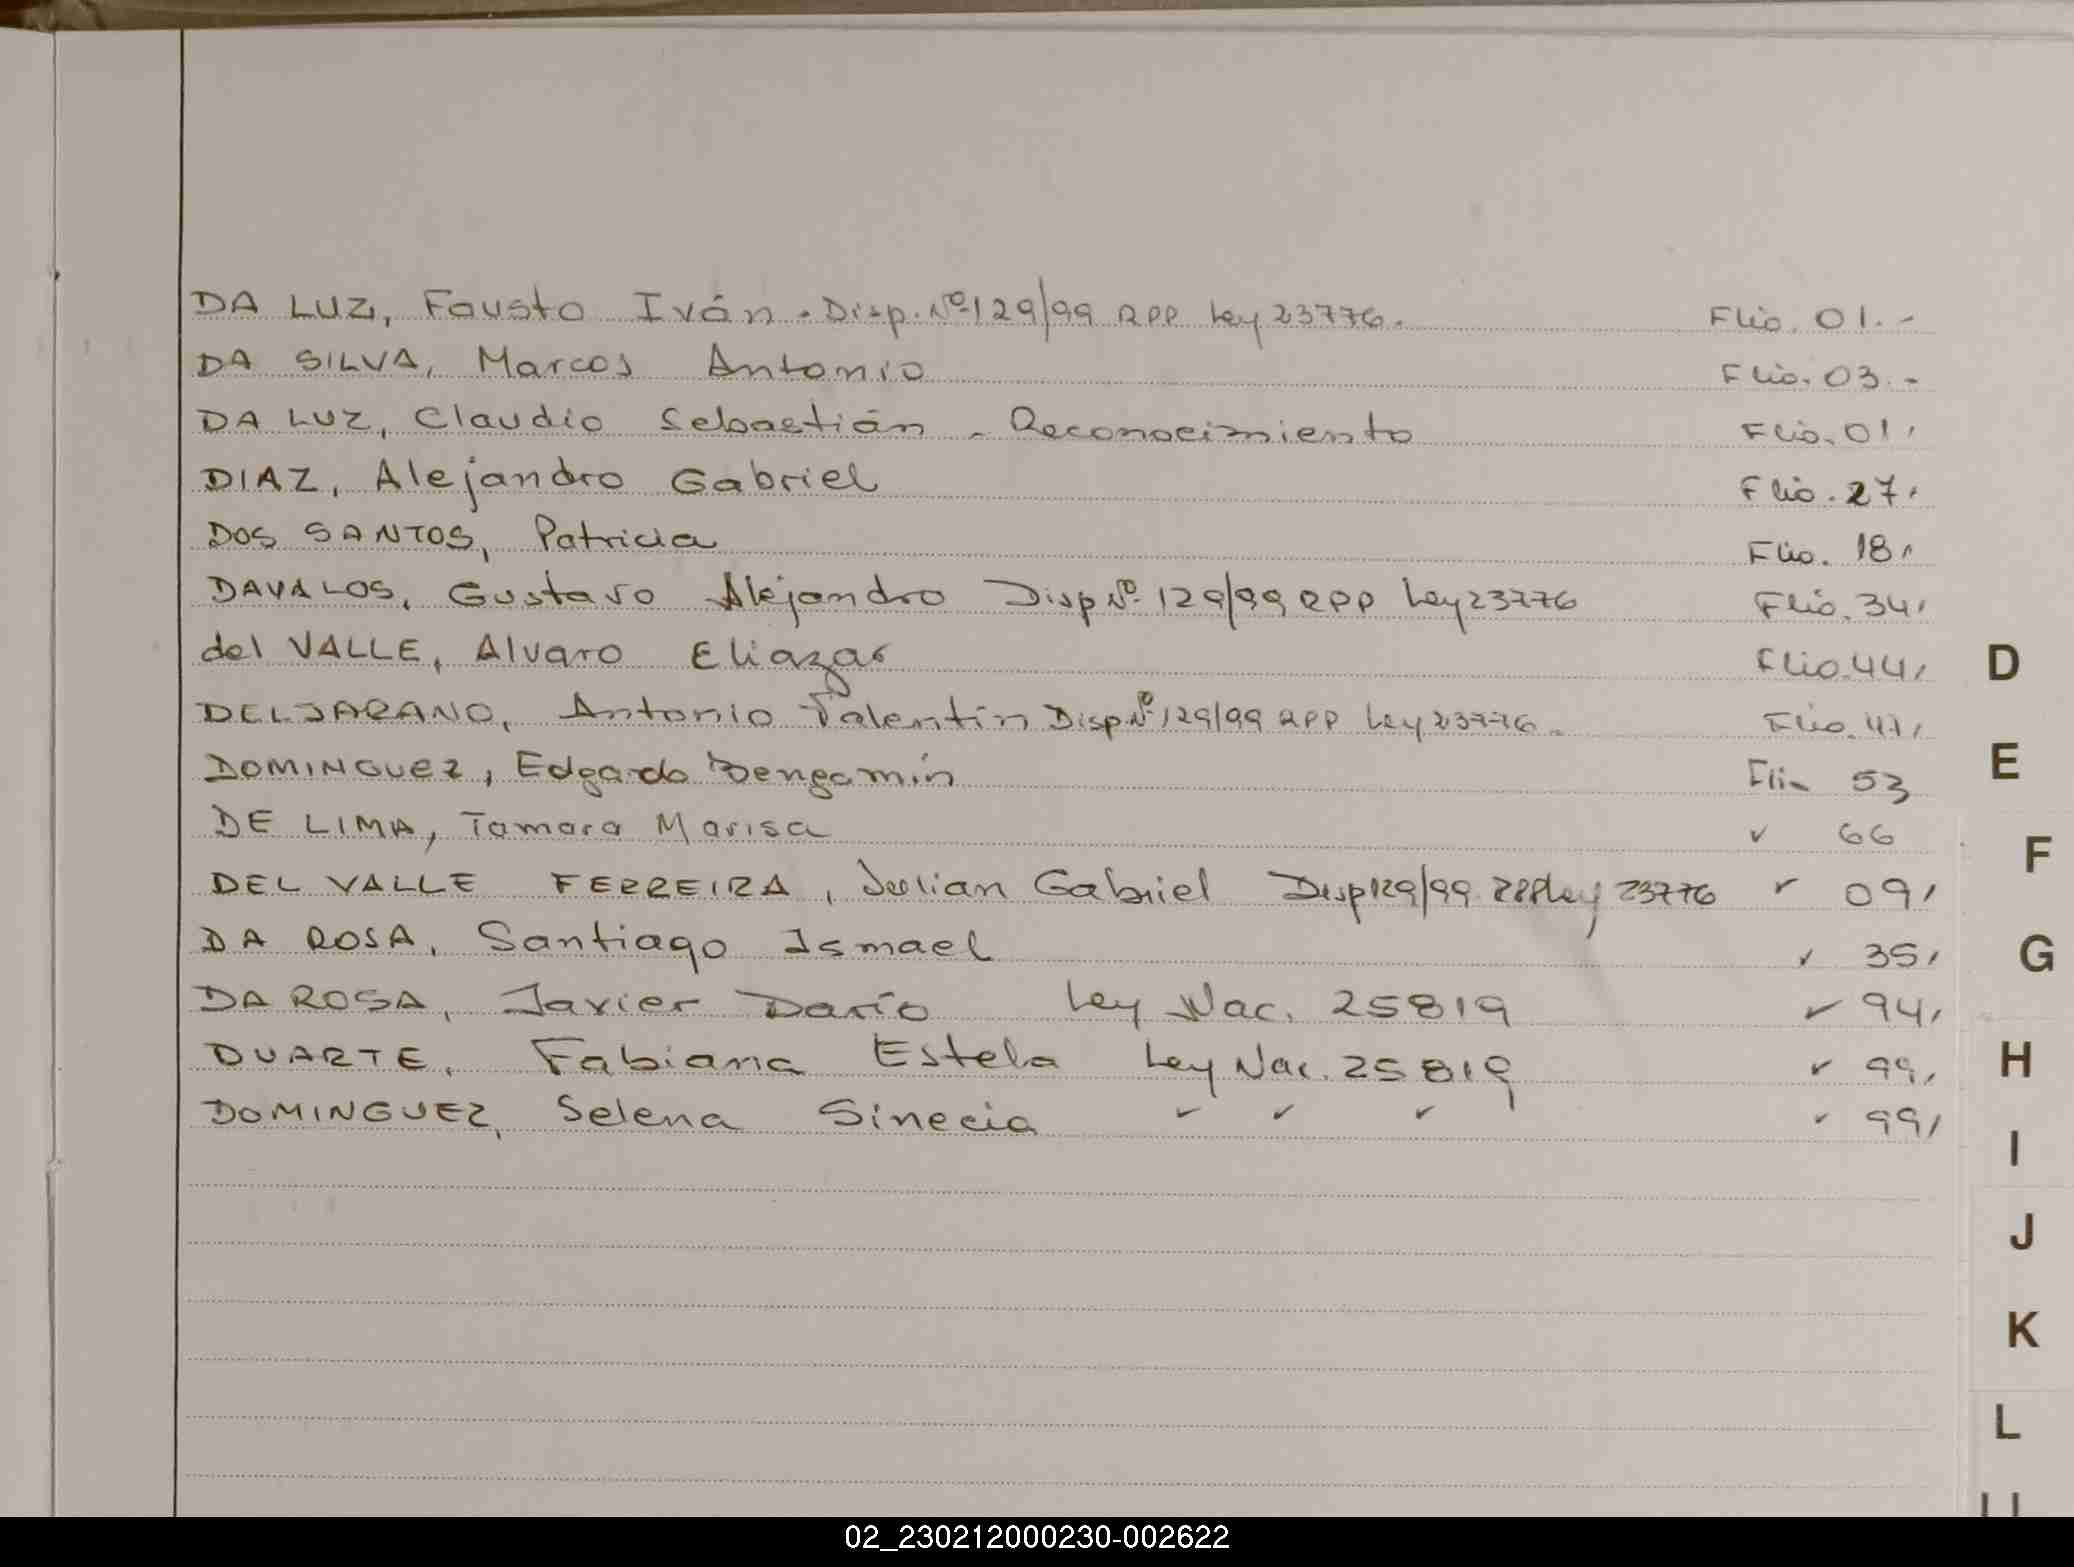 DA LUZ, Fausto Iván. Disp. Nº 129/99 RPP Ley 23776. Flio. 01.-
DA SILVA, Marcos Antonio Flio. 03.-
DA LUZ, Claudio Sebastián - Reconocimiento Flio. 01,
DIAZ, Alejandro Gabriel Flio. 27,
DOS SANTOS, Patricia Flio. 18,
DAVALOS, Gustavo Alejandro Disp Nº 129/99 RPP Ley 23776 Flio. 34,
del VALLE, Alvaro Eliazar Flio. 44,
Antonio Valentín Disp Nº 129/99 RPP Ley 23776. Flio.
DOMINGUEZ, Edgardo Bengamín Flio 53
DE LIMA, Tamara Marisa ✓ 66
DEL VALLE FERREIRA, Julian Gabriel Disp 129/99 RPP Ley 23776 ✓ 09,
DA ROSA, Santiago Ismael ✓ 35,
DA ROSA, Javier Darío Ley Nac. 25819 ✓ 94,
DUARTE, Fabiana Estela Ley Nac. 25819 ✓ 99,
DOMINGUEZ, Selena Sinecia ✓ ✓ ✓ ✓ 99,
D
E
F
G
H
I
J
K
L
02_230212000230-002622